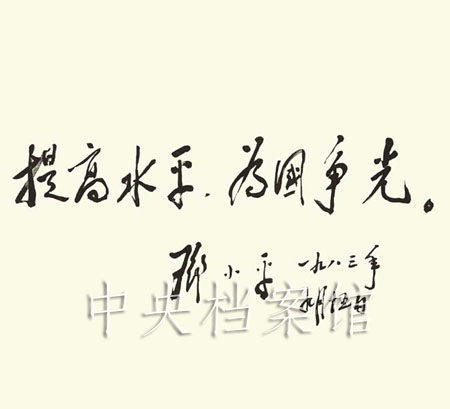 提高水平、為國争光。
鄧小平 一九八三年
九月伍日
中央档案馆